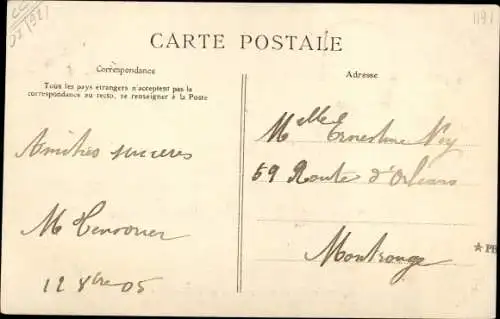 CARTE POSTALE
Correspondance
Tous les pays étrangers n'acceptent pas la
correspondance au recto, se renseigner à la Poste
Adresse
Melle Ernestine
59 Route d'Orléans
Montrouge
Amitiés sincères
M
12 Xbre 05
1191